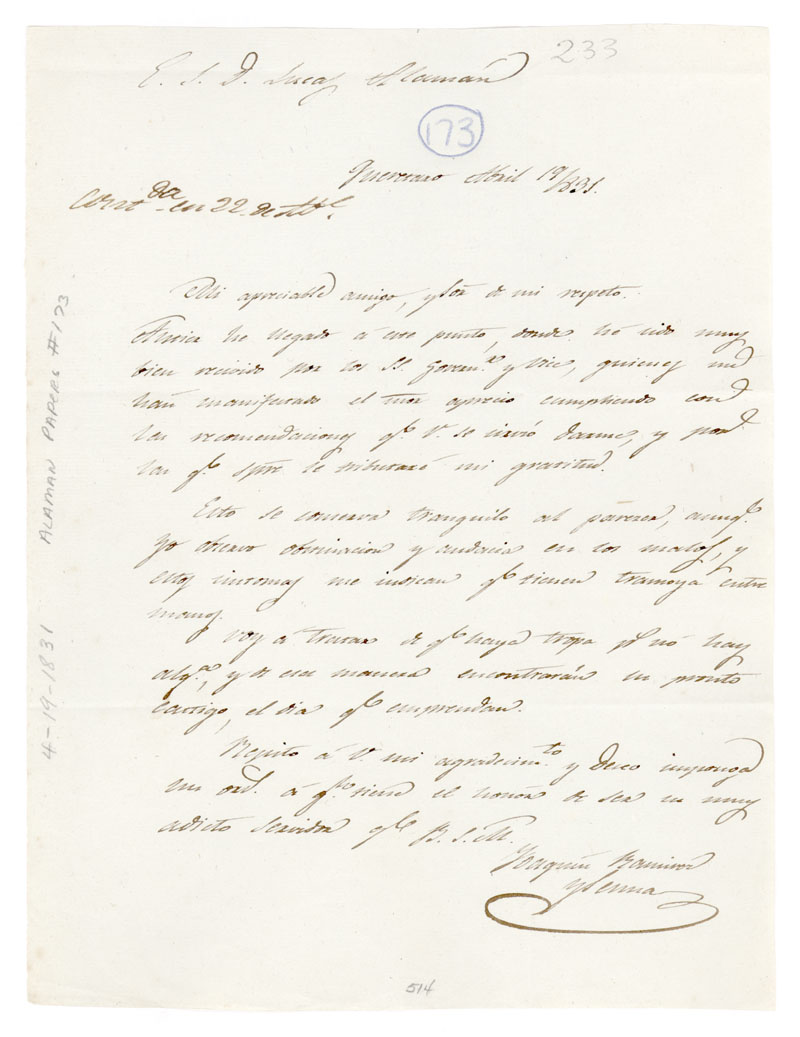 233
E. S. D. Lucas Alamán
173
Queretaro Abril 19/831.
Contda. en 22. de Abl.
Mi apreciable amigo, y Sor. de mi respeto.
he llegado á este punto, donde hé sido muy
bien recivido por los SS. Govern.r y Vice, quienes me
hán manifestado el mor. aprecio cumpliendo con
las recomendaciones qe. V. se sirvió darme, y por
las qe. spre. le tributaré mi gratitud.
Esto se conserva tranquilo al parecer, aunqe.
yo observo obstinacion y audacia en los malos, y
estos sintomas me indican qe. tienen tramoya entre
manos.
Voy á tratar de qe. haya tropa ps. nó hay
alga., y de esa manera encontrarán su pronto
castigo, el dia qe. emprendan.
Repito á V. mi agradecimto. y deseo imponga
sus ords. á qn. tiene el honor de ser su muy
adicto servidor qe. B. S. M.
Joaquin Ramirez
y Sesma
514
4-19-1831 ALAMAN PAPERS #173